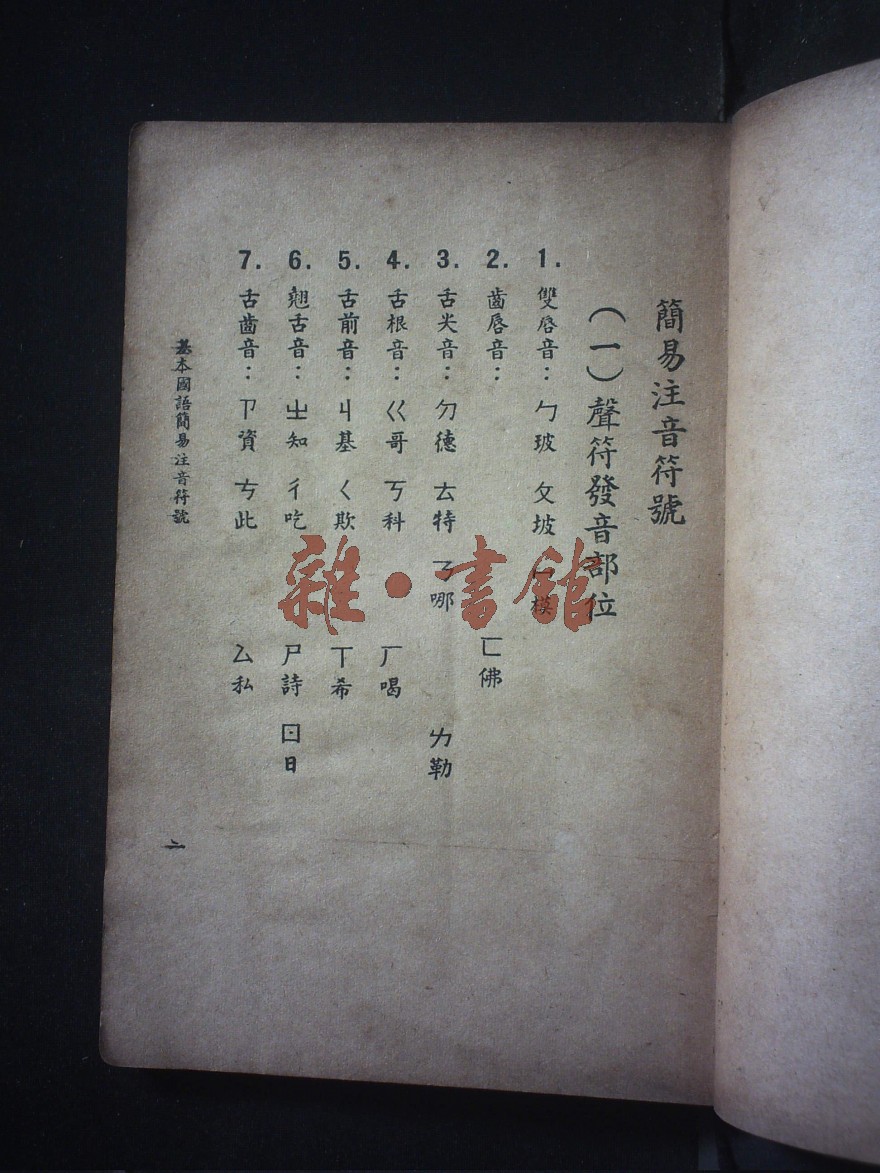 簡易注音符號
(一)聲符發音部位
1. 雙唇音:ㄅ玻 ㄆ坡 ㄇ模
2. 齒唇音: ㄈ佛
3. 舌尖音:ㄉ德 ㄊ特 ㄋ哪 ㄌ勒
4. 舌根音:ㄍ哥 ㄎ科 ㄏ喝
5. 舌前音:ㄐ基 ㄑ欺 ㄒ希
6. 翹舌音:ㄓ知 ㄔ吃 ㄕ詩 ㄖ日
7. 舌齒音:ㄗ資 ㄘ此 ㄙ私
基本國語簡易注音符號
二
雜·書館